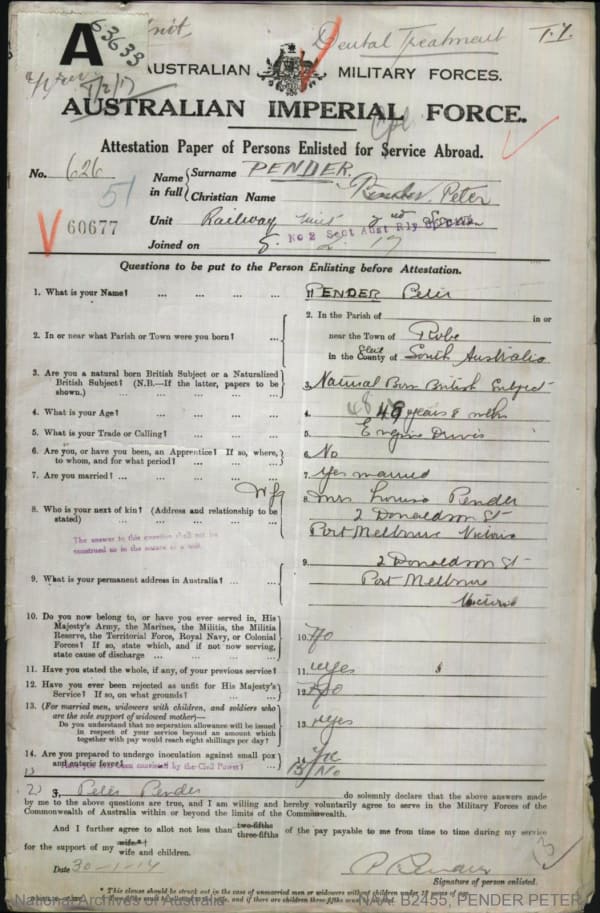 A
63633
Dental Treatment
T.7.
1/2/17
AUSTRALIAN MILITARY FORCES.
AUSTRALIAN IMPERIAL FORCE.
Cpl
Attestation Paper of Persons Enlisted for Service Abroad.
No. 626
Name in full { Surname PENDER.
Christian Name Peter
51
60677
Unit Railway Unit
No 2 Sect Aust Rly
Joined on 8. 2. 17
Questions to be put to the Person Enlisting before Attestation.
1. What is your Name? ... ... ... ... PENDER Peter
2. In or near what Parish or Town were you born? ...
2. In the Parish of in or
near the Town of Robe
in the County of South Australia
3. Are you a natural born British Subject or a Naturalized
British Subject? (N.B.—If the latter, papers to be
shown.) ... ... ... ... ...
3. Natural Born British Subject
4. What is your Age? ... ... ... ... 4. 48 49 years 8 mths
5. What is your Trade or Calling? ... ... ... 5. Engine Driver
6. Are you, or have you been, an Apprentice? If so, where,
to whom, and for what period? ... ... ...
6. No
7. Are you married? ... ... ... ... 7. Yes married
Wife
8. Who is your next of kin? (Address and relationship to be
stated) ... ... ... ... ...
8. Mrs Louisa Pender
2 Donaldson St
Port Melbourne Victoria
The answer to this question shall not be
construed as in the nature of a will.
9. What is your permanent address in Australia? ... ...
9. 2 Donaldson St
Port Melbourne
Victoria
10. Do you now belong to, or have you ever served in, His
Majesty's Army, the Marines, the Militia, the Militia
Reserve, the Territorial Force, Royal Navy, or Colonial
Forces? If so, state which, and if not now serving,
state cause of discharge ... ... ... ...
10. No
11. Have you stated the whole, if any, of your previous service? 11. Yes
12. Have you ever been rejected as unfit for His Majesty's
Service? If so, on what grounds? ... ...
12. No
13. (For married men, widowers with children, and soldiers who
are the sole support of widowed mother)—
Do you understand that no separation allowance will be issued
in respect of your service beyond an amount which
together with pay would reach eight shillings per day?
13. Yes
14. Are you prepared to undergo inoculation against small pox
and enteric fever? ...
14. Yes
Have you ever been convicted by the Civil Power?
15 No
I, Peter Pender do solemnly declare that the above answers made
by me to the above questions are true, and I am willing and hereby voluntarily agree to serve in the Military Forces of the
Commonwealth of Australia within or beyond the limits of the Commonwealth.
And I further agree to allot not less than two-fifths three-fifths of the pay payable to me from time to time during my service
for the support of my wife* wife and children.
Date 30-1-17
P Pender
Signature of person enlisted.
* This clause should be struck out in the case of unmarried men or widowers without children under 18 years of age.
National Archives of Australia
NAA: B2455, PENDER PETER